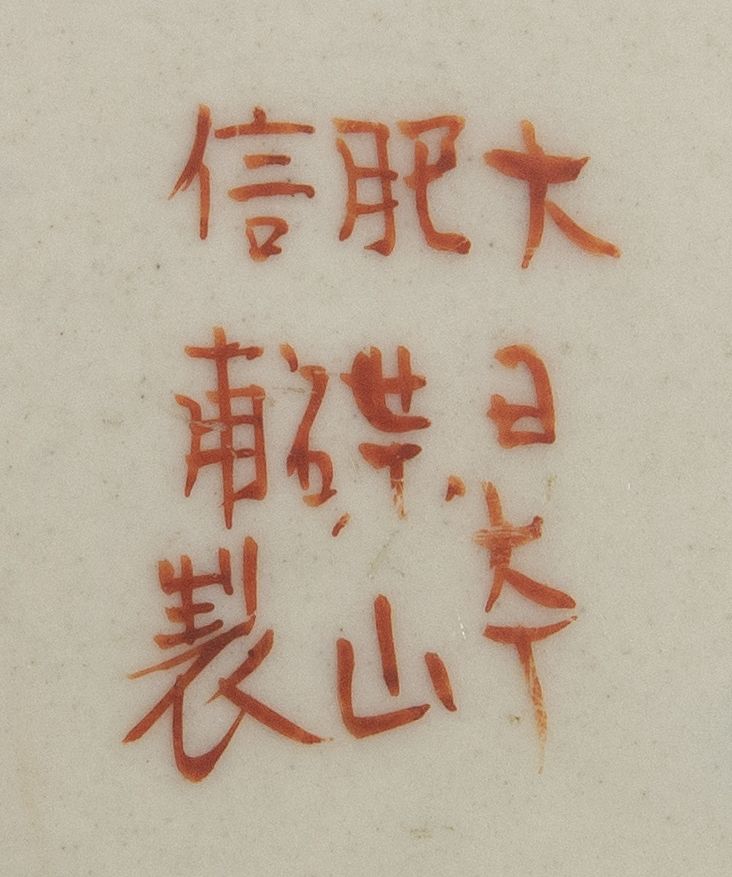 大日本
肥碟山
信甫製